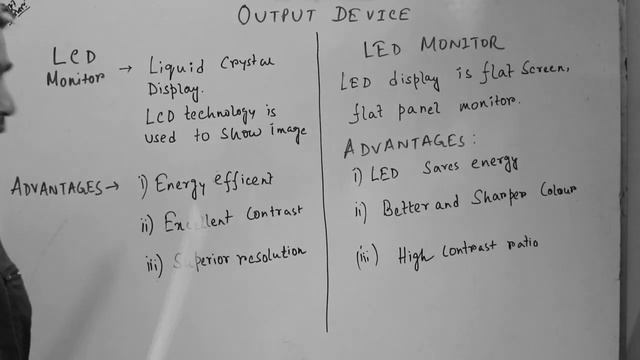 OUTPUT DEVICE
LCD
Monitor → Liquid Crystal
Display.
LCD technology is
used to show image
ADVANTAGES → i) Energy efficent
ii) Excellent Contrast
iii) Superior resolution
LED MONITOR
LED display is flat Screen,
flat panel monitor.
ADVANTAGES:
i) LED Saves energy
ii) Better and Sharper Colour
(iii) High Contrast ratio